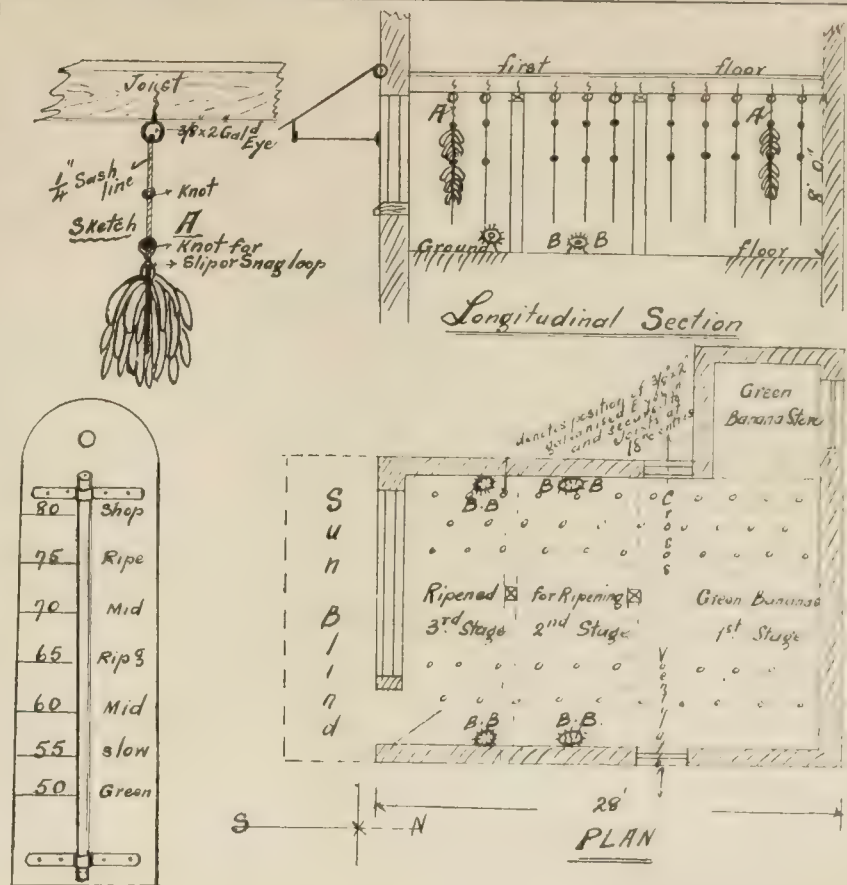 Joist
3/8 x 2 Gal'd
Eye
1/4" Sash
line
Knot
Sketch A
Knot for
Slip or Snag loop
first floor
A A
8' 0"
Ground B B floor
Longitudinal Section
denotes position of 3/8" x 2"
galvanised Eye
and secure to
Joists at
18" centres
Green
Banana Store
Sun Blind
B.B B B
Cross
Ripened for Ripening Green Bananas
3rd Stage 2nd Stage 1st Stage
B.B B.B.
28'
S N
PLAN
80 Shop
75 Ripe
70 Mid
65 Rip g
60 Mid
55 slow
50 Green